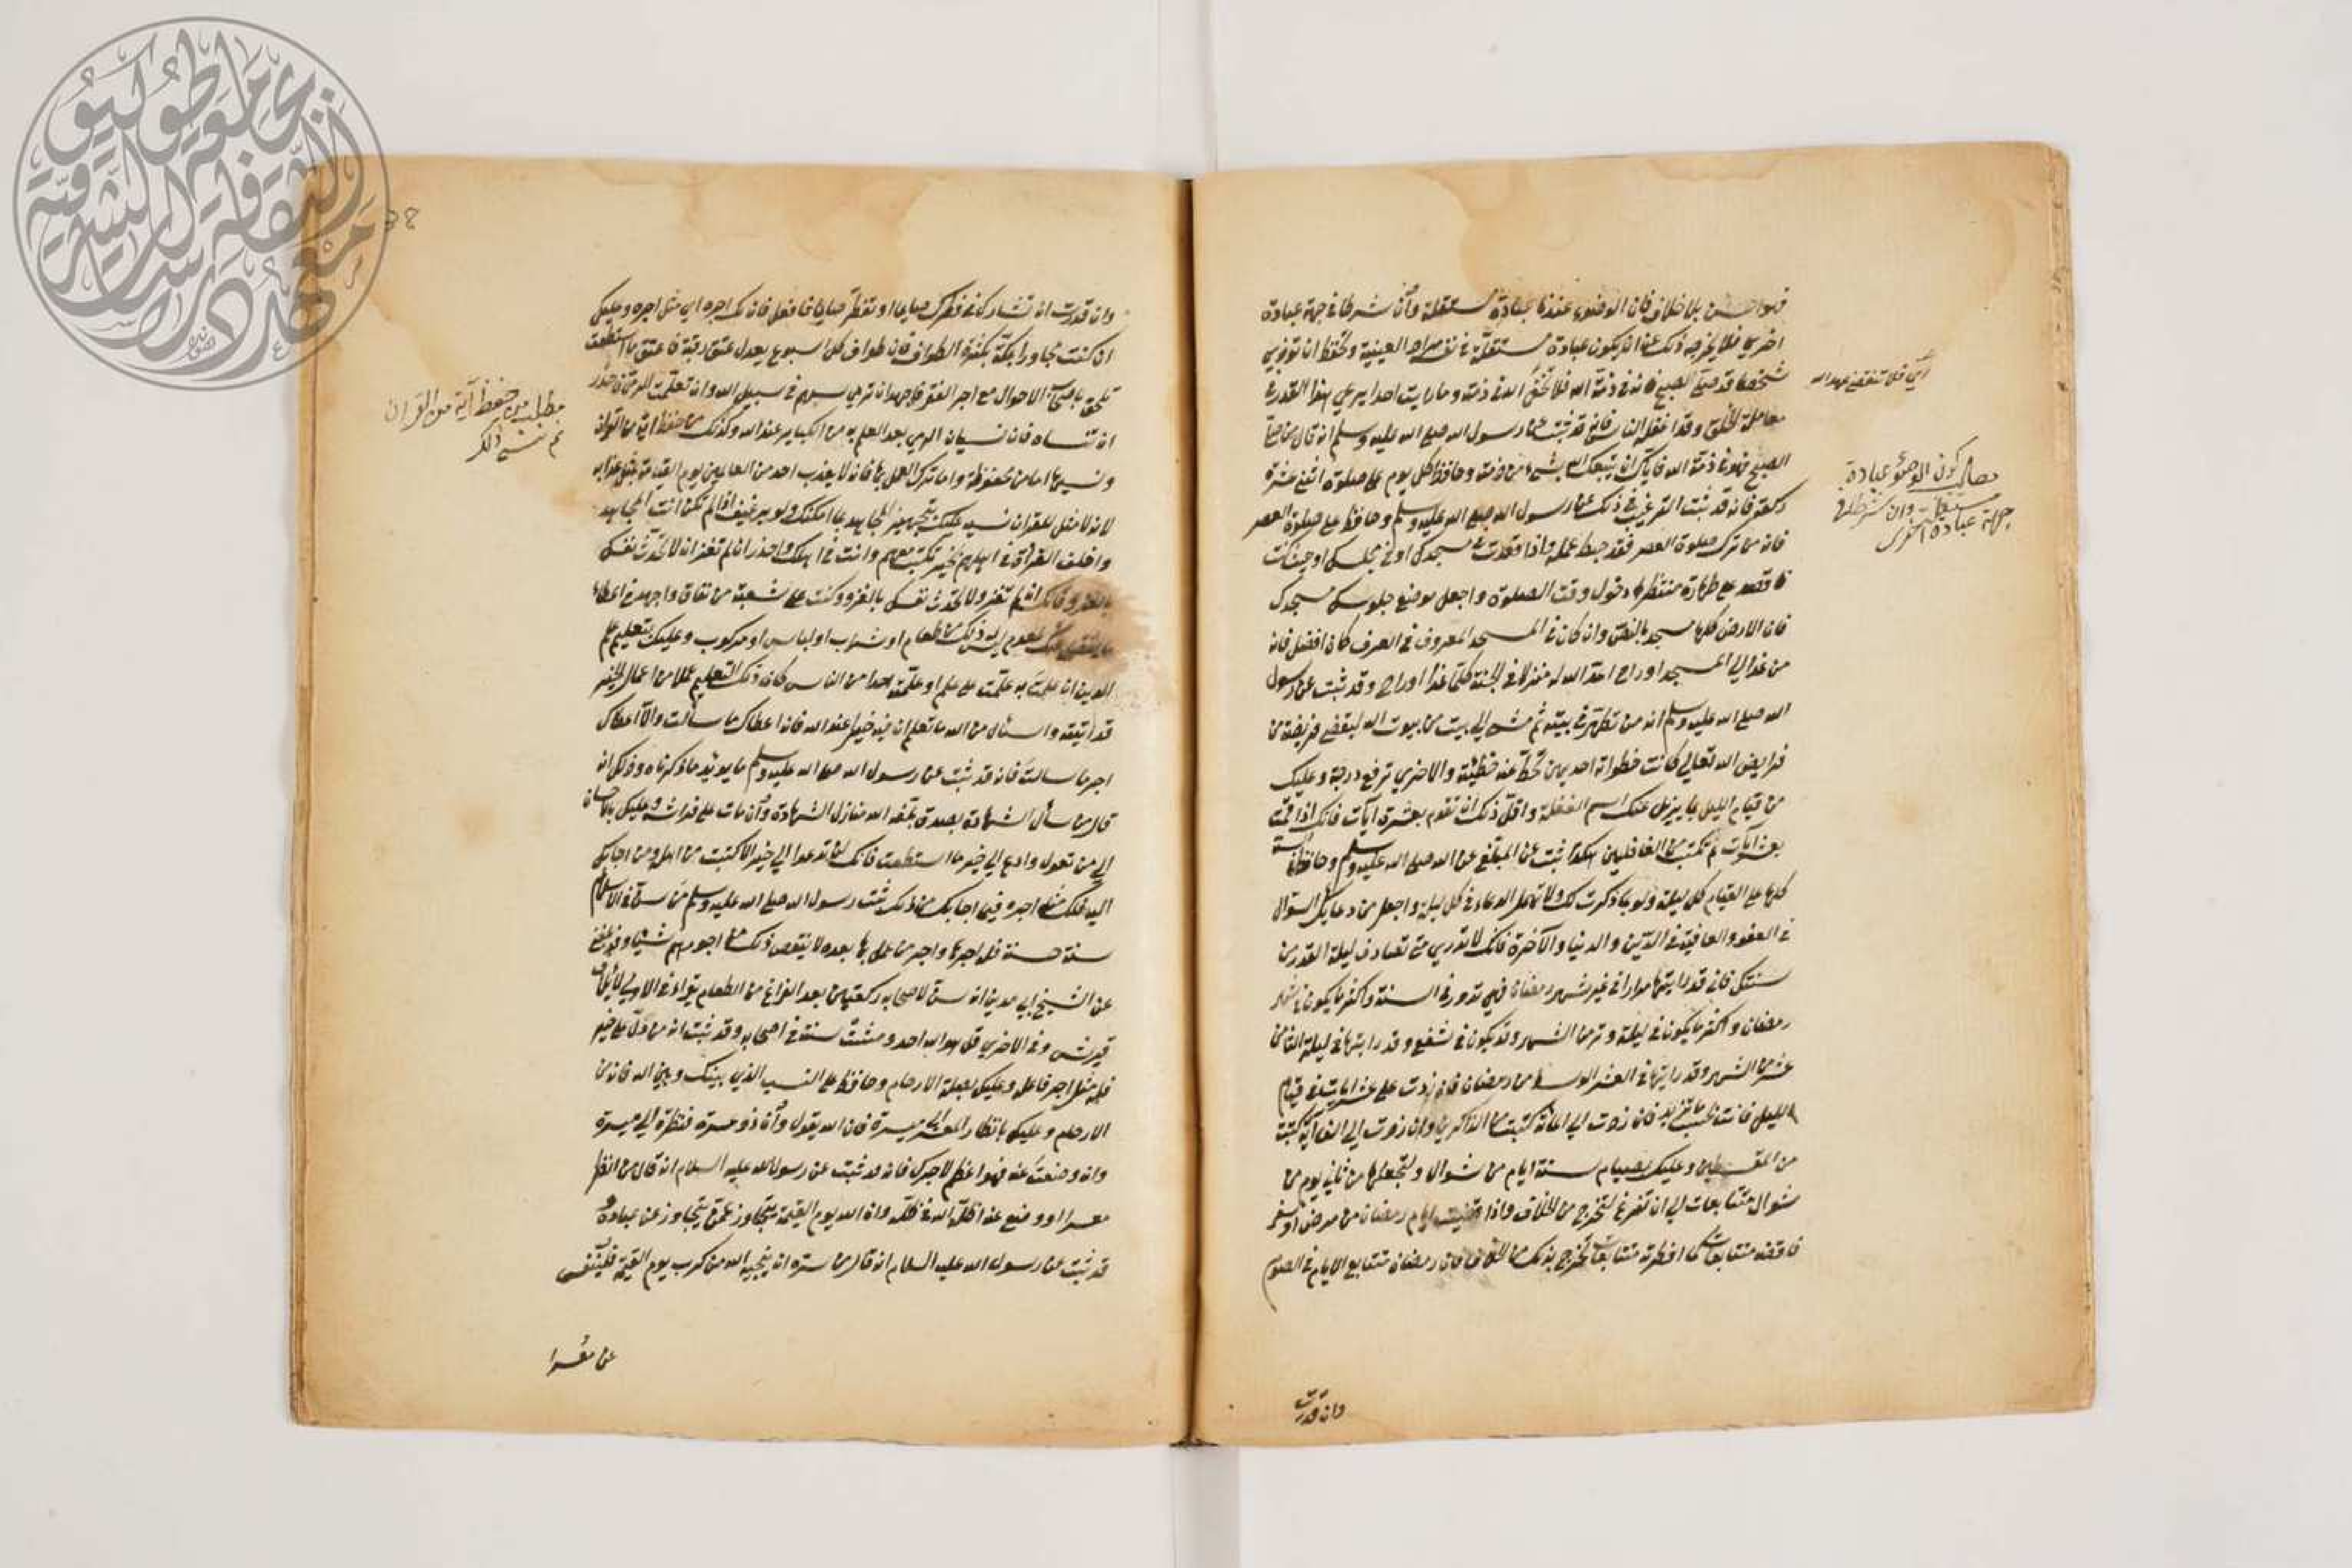 فهو احسن بلا خلاف فان الوضوء عندنا عبادة مستقلة وان شرطا في جهة عبادة
اخرى فلا يخرجه ذلك عن ان يكون عبادة مستقلة في نفسه مراد العينية وتحفظ ان توذي
شخصا قد صلى الصبح فانه في ذمة الله فلا تخفر الله في ذمته وما رايت احدا يرعى هذا القدر في
معاملة الخلق وقد اغفله الناس فانه قد ثبت عن رسول الله صلى الله عليه وسلم انه قال من صلى
الصبح فهو في ذمة الله فاياك ان يتبعك الله بشيء من ذمته وحافظ كل يوم على صلوة اثني عشرة
ركعة فانه قد ثبت الترغيب في ذلك عن رسول الله صلى الله عليه وسلم وحافظ على صلوة العصر
فانه من ترك صلوة العصر فقد حبط عمله واذا قعدت في مسجدك او في مجلسك او حيث كنت
فاقعد على طهارة منتظرا دخول وقت الصلوة واجعل موضع جلوسك مسجدك
فان الارض كلها مسجد بالنص وان كان في المسجد المعروف في العرف كان افضل فانه
من غدا الى المسجد او راح اعد الله له منزلا في الجنة كلما غدا او راح وقد ثبت عن رسول
الله صلى الله عليه وسلم انه من تطهر في بيته ثم مشى الى بيت من بيوت الله ليقضي فريضة من
فرايض الله تعالى كانت خطواته احديهن تحط عنه خطيئة والاخرى ترفع درجة وعليك
من قيام الليل بما يزيل عنك اسم الغفلة واقل ذلك ان تقوم بعشرة ايات فانك اذا قمت
بعشر ايات لم تكتب من الغافلين هكذا ثبت عن المبلغ عن الله صلى الله عليه وسلم وحافظ السنة
كلها على القيام كل ليلة ولو بما ذكرت لك ولا تهمل الدعاء في كل ليلة واجعل من دعايك السوال
في العفو والعافية في الدين والدنيا والآخرة فانك لا تدري متى تصادف ليلة القدر من
سنتك فاني قد رايتها مرارا في غير شهر رمضان فهي تدور في السنة واكثر ما يكون في شهر
رمضان واكثر ما يكون في ليلة وتر من الشهر وقد يكون في شفع وقد رايتها في ليلة الثامن
عشر من الشهر وقد رايتها في العشر الوسط من رمضان فان زدت على عشر ايات في قيام
الليل فانت بحسب ما تزيد فان زدت الى المائة كتبت من الذاكرين وان زدت الى الف اية كتبت
من المقسطين وعليك بصيام ستة ايام من شوال ولتجعلها من ثاني يوم من
شوال متتابعات الى ان تفرغ لتخرج من الخلاف واذا قضيت ايام رمضان من مرض او سفر
فاقضه متتابعا كما افطرته متتابعا تخرج بذلك من الخلاف فان رمضان متتابع الايام في الصوم
وان قدرت
اي فلا تنقض عهد الله
مطلب كون الوضوء عبادة
مستقلة وان شرطا في
جهة عبادة اخرى
38
وان قدرت ان تشارك في فطرك صايما او تفطر صايما فافعل فان لك اجره اي مثل اجره وعليك
ان كنت مجاورا بمكة بكثرة الطواف فان طواف كل اسبوع يعدل عتق رقبة فاعتق ما استطعت
تلحق باصحاب الاموال مع اجر الفقر واجهد ان ترمي بسهم في سبيل الله وان تعلمت الرمي فاحذر
ان تنساه فان نسيان الرمي بعد العلم به من الكباير عند الله وكذلك من حفظ اية من القران
ونسيها اما من محفوظه واما ترك العمل بها فانه لا يعذب احد من العالمين يوم القيامة بمثل عذابه
لانه لا مثل للقران نسيه وعليك بتجهيز المجاهد بما امكنك ولو برغيف اذا لم تكن انت المجاهد
واخلف الغزاة في اهليهم بخير تكتب معهم وانت في اهلك واحذر ان لم تغز ان لا تحدث نفسك
بالغزو فانك ان لم تغز ولا تحدث نفسك بالغزو وكنت على شعبة من نفاق واجهد في اعطاء
ما يفضل عنك لمعدوم ليس له ذلك من طعام او شراب او لباس او مركوب وعليك بتعليم علم
الدين ان علمت به علمت على علم او علمته احدا من الناس كان ذلك التعليم عملا من اعمال الخير
قد اتيته واسأل من الله ما تعلم ان فيه خيرا عند الله فان اعطاك ما سألت والا اعطاك
اجر ما سالت فانه قد ثبت عن رسول الله صلى الله عليه وسلم ما يويد ما ذكرناه وذلك انه
قال من سأل الشهادة بصدق بلغه الله منازل الشهادة وان مات على فراشه وعليك بالاحسان
الى من تعول وادع الى خير ما استطعت فانك لن تدعو الى خير الا كنت من اهله ومن اجابك
اليه فلك مثل اجره فيما اجابك من ذلك ثبت رسول الله صلى الله عليه وسلم من سن في الاسلام
سنة حسنة فله اجرها واجر من عمل بها بعده لا ينقص ذلك من اجورهم شيئا وقد بلغني
عن الشيخ ابي مدين انه سن لاصحابه ركعتين بعد الفراغ من الطعام يقراء في الاولى لايلاف
قريش وفي الاخرى قل هو الله احد ومشت سنته في اصحابه وقد ثبت انه من دل على خير
فله مثل اجر فاعله وعليك بصلة الارحام وحافظ على النسب الذي بينك وبين الله فانه من
الارحام وعليك بانظار المعسر الى ميسرة فان الله يقول وان كان ذو عسرة فنظرة الى ميسرة
وان وضعت عنه فهو اعظم لاجرك فانه قد ثبت عن رسول الله عليه السلام انه قال من انظر
معسرا او وضع عنه اظله الله في ظله وان الله يوم القيمة يتجاوز عمن يتجاوز عن عباده
قد ثبت عن رسول الله عليه السلام انه قال من سره ان ينجيه الله من كرب يوم القيمة فلينفس
عن معسرا
مطلب من حفظ آية من القرآن
ثم نسي ذلك